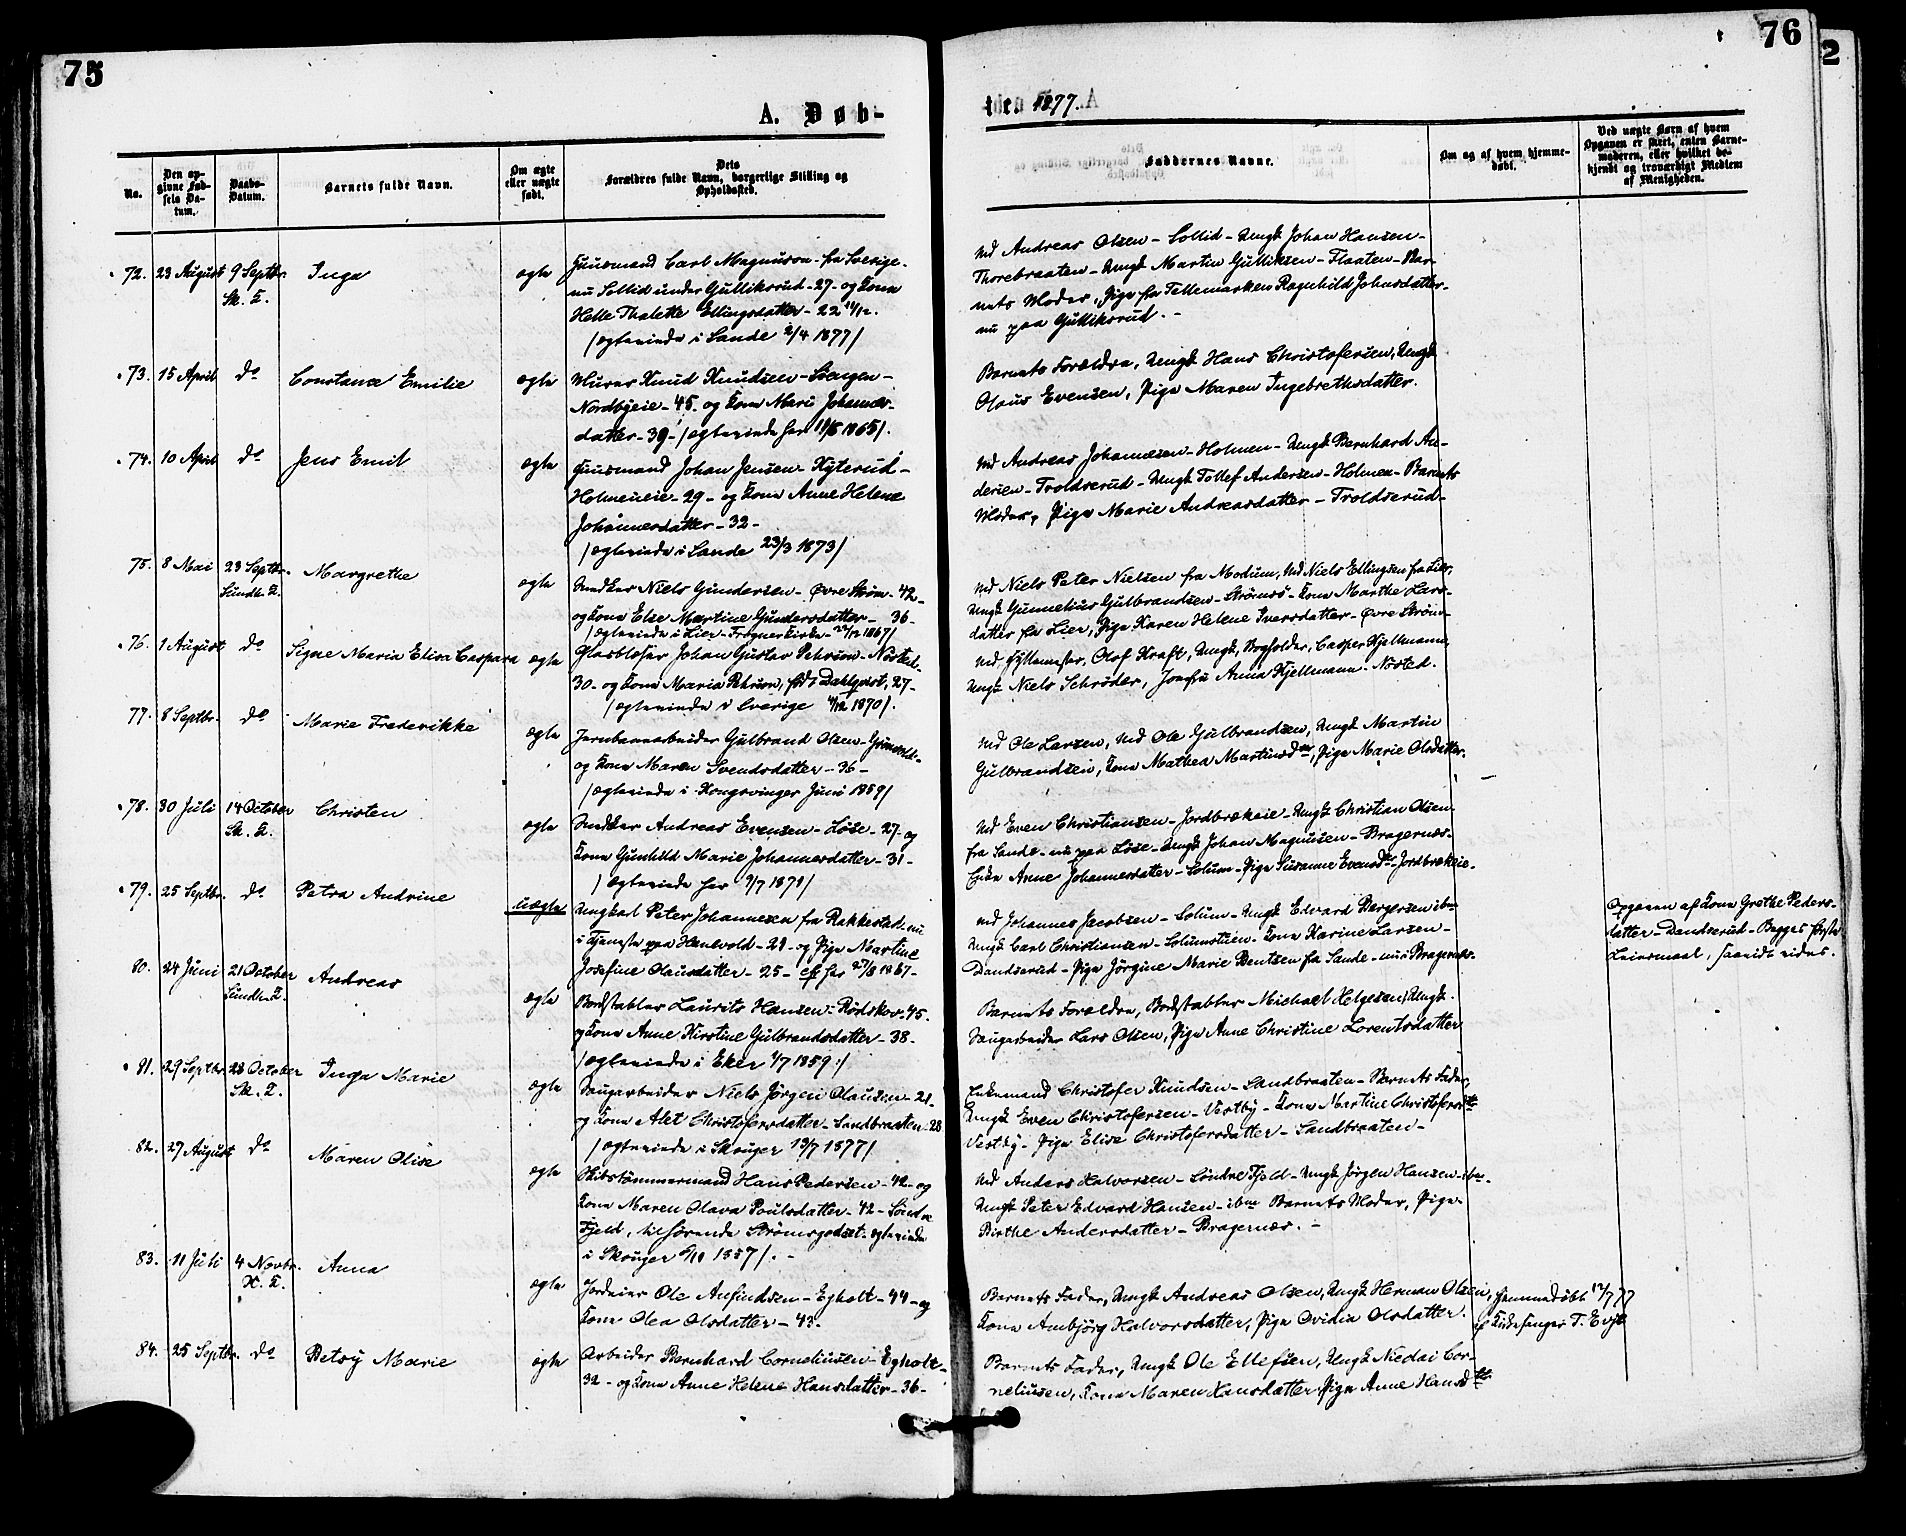 75
A. Døb-
No.
Den op-
givne Fød-
sels Da-
tum.
Daabs-
Datum.
Barnets fulde Navn.
Om ægte
eller uægte
født.
Dets
Forældres fulde Navn, borgerlige Stilling og
Opholdssted.
72. 23 August 9 Septbr. Inga ægte Huusmand Carl Magnuson - fra Sverige -
Sk. K. nu Sollid under Gulliksrud - 27 - og Kone
Helle Thalette Ellingsdatter - 22
/ægteviede i Sande 2/4 1877/
73. 15 April do Constance Emilie ægte Murer Knud Knudsen -
Nordbyeie - 45. og Kone Mari Johannes-
datter - 39 - /ægteviede her 11/8 1865/.
74. 10 April do Jens Emil ægte Huusmand Johan Jensen - Hyterud -
Holmeneie - 29 - og Kone Anne Helene
Johannesdatter - 32 -
/ægteviede i Sande 23/3 1873/
75. 8 Mai 23 Septbr. Margrethe ægte Snedker Niels Gundersen - Øvre Strøm - 42 -
og Kone Else Martine Gundersdatter - 36 -
/ægteviede i Lier - Frogner Kirke - 1867/
76. 1 August do Signe Maria Elisa Caspara ægte Glasblæser Johan Gustav Pehrson - Nøsted -
30 - og Kone Maria Pehrson, født Dahlqvist, 27 -
/ægteviede i Sverige 1870/.
77. 8 Septbr. do Marie Frederikke ægte Jernbanearbeider Gulbrand Olsen -
og Kone Maren Svendsdatter - 36 -
/ægteviede i Kongsvinger Juni 1859/
78. 30 Juli 14 October Christen ægte Snedker Andreas Evensen - Løse - 27 - og
Kone Gunhild Marie Johannesdatter - 31 -
/ægteviede her 1871/
79. 25 Septbr. do Petra Andrine uægte Ungkarl Peter Johannesen fra Rakkestad - nu
i Tjeneste paa - 28 - og Pige Martine
Josefine Olausdatter - 25 - 1867 -
80. 24 Juni 21 October Andreas ægte Bordstabler Laurits Hansen - Rødskov - 45.
og Kone Anne Kirstine Gulbrandsdatter - 38 -
/ægteviede i Eker 1/7 1859/
81. 29 Septbr. 28 October Inga Marie ægte Saugarbeider Niels Jørgen Olausen - 21 -
Sk. K. og Kone Alet Christofersdatter - Sandbraaten - 28
/ægteviede i Skouger 13/7 1877/
82. 27 August do Maren Olise ægte Skibstømmermand Hans Pedersen - 42 - og
Kone Maren Olava Poulsdatter - 42 - Søndre
Fjeld, tilhørende Strømsgodset - ægteviede
i Skouger 1857/. -
83. 11 Juli 4 Novbr. Anna ægte Jordeier Ole Anfindsen - Egholt - 44 - og
Kone Olea Olsdatter - 43 -
84. 25 Septbr. do Betsy Marie ægte Arbeider Bernhard Corneliusen - Egholt -
32 - og Kone Anne Helene Hansdatter - 36 -
76
2
ten 1877.
Faddernes Navne.
Om og af hvem hjemme-
døbt.
Ved uægte Børn af hvem
Opgaven er skeet, enten Barne-
moderen, eller hvilket be-
kjendt og troværdigt Medlem
af Menigheden.
Md Andreas Olsen - Sollid - Ungk Johan Hansen -
Thorebraaten - Ungk Martin Gulliksen - Flaaten - Bar-
nets Moder, Pige fra Tellemarken Ragnhild Johnsdatter -
nu paa Gulliksrud. -
Barnets Forældre, Ungk Hans Christofersen, Ungk
Olaus Evensen, Pige Maren Ingebrethsdatter.
Md Andreas Johannesen - Holmen - Ungk Bernhard An-
dersen - Troldserud - Ungk Tollef Andersen - Holmen - Barnets
Moder, Pige Marie Andreasdatter - Troldserud -
Md Niels Peter Nielsen fra Modum, Md Niels Ellingsen fra Lier,
Ungk Gunnelius Gulbrandsen - Strømsø - Kone Marthe Lars-
datter fra Lier, Pige Karen Helene Iversdatter - Øvre Strøm -
Md Hyttemester Olof Kraft, Ungk. Bogholder, Casper Kjellmann,
Ungk Niels Schrøder, Jomfru Anna Kjellmann - Nøsted.
Md Ole Larsen, Md Ole Gulbrandsen, Ungk Martin
Gulbrandsen, Kone Mathea Martinsdtr, Pige Marie Olsdatter.
Md Even Christiansen - Jordbrækeie - Ungk Christian Olsen
fra Sande - nu paa Løse - Ungk Johan Magnusen - Bragernæs -
Enke Anne Johannesdatter - Solum - Pige Susanne Evensdtr - Jordbrækeie -
Md Johannes Jacobsen - Solum - Ungk Edvard Børgersen ibm
Ungk Carl Christiansen - Solumstuen - Kone Karine Larsen -
Dandserud - Pige Jørgine Marie Bentsen fra Sande - nu i Bragernæs -
Opgaven af Kone Grethe Peders-
datter - Dandserud - Begges første
Leiermaal, saavidt vides.
Barnets Forældre, Bordstabler Michael Helgesen, Ungk.
Saugarbeider Lars Olsen, Pige Anne Christine Lorentsdatter
Enkemand Christofer Knudsen - Sandbraaten - Barnets Fader,
Ungk Even Christofersen - Vestby - Kone Martine Christofersdtr
Vestby - Pige Elise Christofersdatter - Sandbraaten -
Md Anders Halvorsen - Søndre Fjeld - Ungk Jørgen Hansen - ibm -
Ungk Peter Edvard Hansen - ibm Barnets Moder, Pige
Birthe Andersdatter - Bragernæs. -
Barnets Fader, Ungk Andreas Olsen, Ungk Herman Olsen, Hjemmedøbt 12/7 77
Kone Anbjørg Halvorsdatter, Pige Ovidia Olsdatter. af Kirkesanger T. Evje
Barnets Fader, Ungk Ole Ellefsen, Ungk Nicolai Cor-
neliusen, Kone Maren Hansdatter, Pige Anne Hansdtr